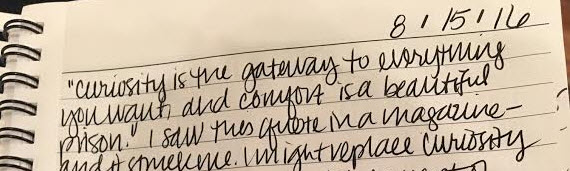 8/15/16
"Curiosity is the gateway to everything
you want, and comfort is a beautiful
prison." I saw this quote in a magazine -
and it struck me. I might replace curiosity